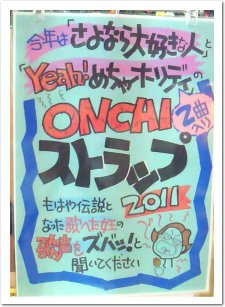 今年は「さよなら大好きな人」と
「Yeah!めちゃホリディ」の
ONCHI 2曲入り
ストラップ。
2011
もはや伝説と
なった
歌声をズバッ!と
聞いてください